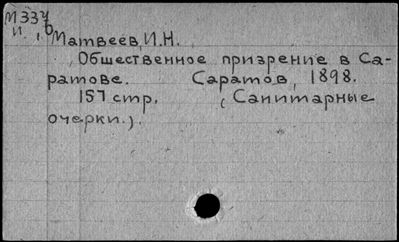 М337
и.,б
Матвеев, И.Н.
Общественное призрение в Са-
ратове. Саратов, 1898.
157 стр. (Санитарные
очерки.).